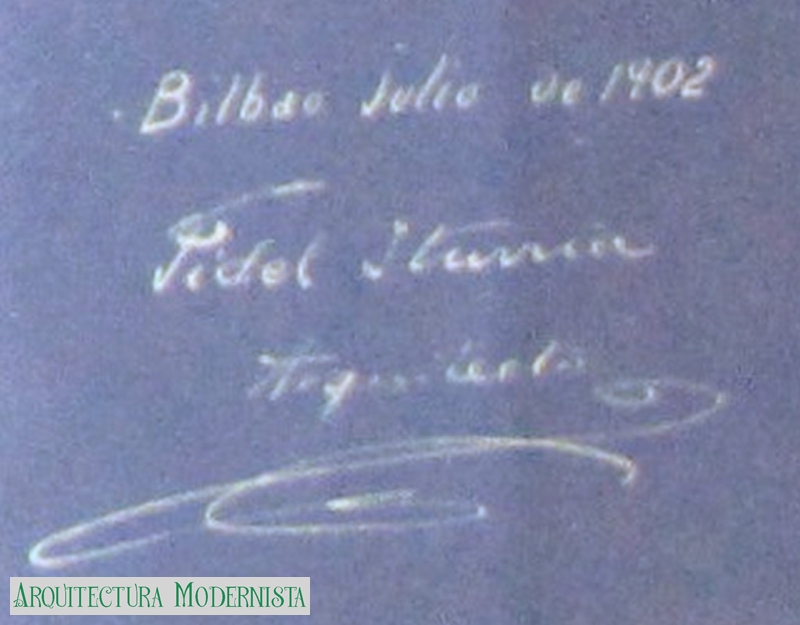 Bilbao julio de 1902
Fidel Iturria
Arquitecto
ARQUITECTURA MODERNISTA